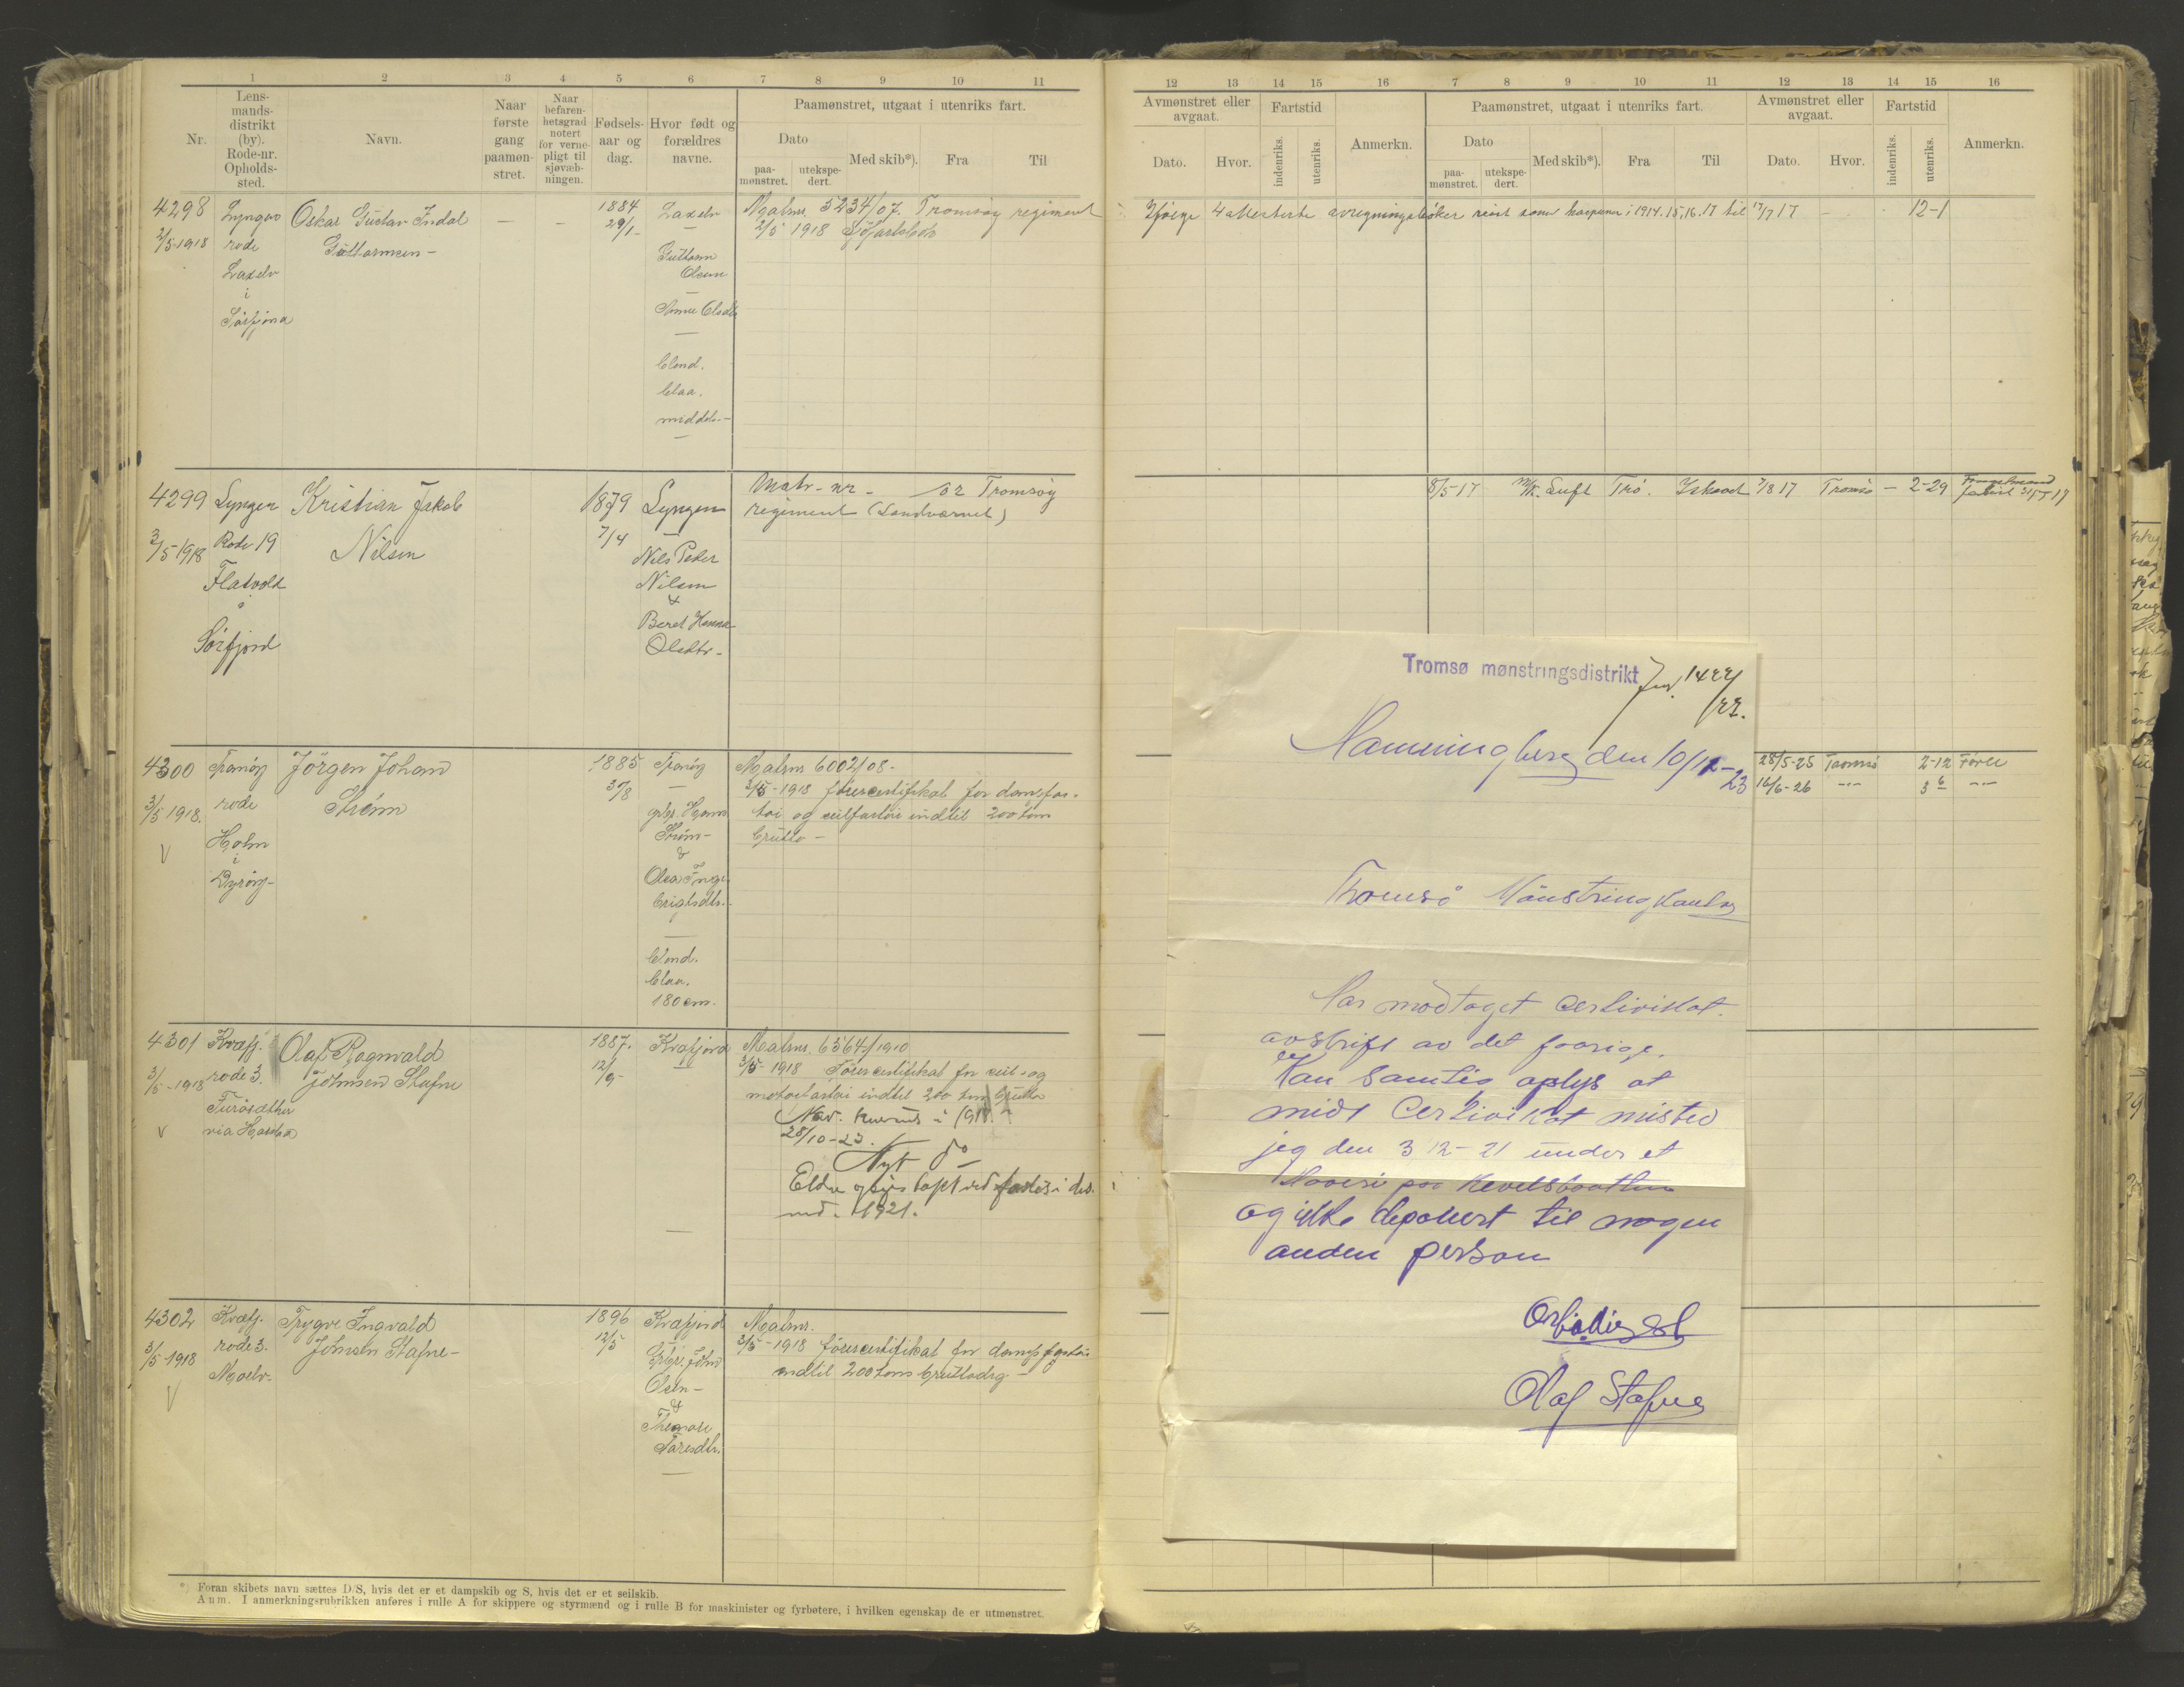 1 2 3 4 5 6 7 8 9 10 11
Nr.
Lens-
mands-
distrikt
(by).
Rode-nr.
Opholds-
sted.
Navn.
Naar
første
gang
paamøn-
stret.
Naar
befaren-
hetsgrad
notert
for verne-
pligt til
sjøvæb-
ningen.
Fødsels-
aar og
dag.
Hvor født og
forældres
navne.
Paamønstret, utgaat i utenriks fart.
Dato
paa-
mønstret.
utekspe-
dert.
Med skib*).
Fra
Til
4298
2/5-1918
Lyngen
rode
Laxelv
i
Sørfjord
Oskar Gustav Indal
Guttormsen -
1884
29/1-
Laxelv
Guttorm
Olsen
Anne Olsdtr
blond.
blaa.
middels-
Matrnr. 5234/07. Tromsøy regiment
2/5 1918 Sjøfartsbok
4299
3/5 1918
Lyngen
Rode 19
Flatvold
i
Sørfjord
Kristian Jakob
Nilsen
1879
7/4
Lyngen
Nils Peder
Nilsen
&
Beret Hanna
Olsdtr-
Matr-nr - /02 Tromsøy
regiment (Landværnet)
4300
3/5 1918.
V
Tranøy
rode
Holm
i
Dyrøy-
Jörgen Johan
Strøm
1885
3/8
Tranøy
gbr. Hans
Strøm-
&
Olea Inge-
brigtsdtr.
blond.
blaa.
180 cm.
Matrnr 6002/08-
3/5-1918 førercertifikat for dampfar-
tøi og seilfartøi indtil 200 tons
brutto -
4301
3/5-1918
V
Kvæfj.
rode 3.
via Harstad
Olaf Ragnvald
Johnsen Stafne
1887.
12/9-
Kvæfjord
Matrnr. 6564/1910
3/5-1918 Førercertifikat for seil- og
motorfartøi indtil 200 tons brutto
Nav. kursus i 1918.
28/10-23.
Nyt do
Eldre opgis tapt ved forlis i des.
md. 1921.
4302
3/5-1918
V
Kvæfj.
rode 3.
Trygve Ingvald
Johnsen Stafne-
1896
12/5
Kvæfjord
Gbr. John
Olsen-
&
Matrnr.
3/5-1918 førercertifikat for dampfartøi
indtil 200 tons bruttodrg -
*) Foran skibets navn sættes D/S, hvis det er et dampskib og S, hvis det er et seilskib.
Anm. I anmerkningsrubrikken anføres i rulle A for skippere og styrmænd og i rulle B for maskinister og fyrbøtere, i hvilken egenskap de er utmønstret.
12 13 14 15 16 7 8 9 10 11 12 13 14 15 16
Avmønstret eller
avgaat.
Dato.
Hvor.
Fartstid
indenriks.
utenriks.
Anmerkn.
Paamønstret, utgaat i utenriks fart.
Dato
paa-
mønstret.
utekspe-
dert.
Med skib*).
Fra
Til
Avmønstret eller
avgaat.
Dato.
Hvor.
Fartstid
indenriks.
utenriks.
Anmerkn.
Ifølge 4 attesterte avregningsbøker reist som harpuner i 1914.15,16.17 til 17/7 17 - 12-1
8/5-17 M/K. Luft Trö. Ishavet 7/8 17 Tromsö - 2-29
28/5-25 Tromsö 2-12 Förer
16/6-26 -"- 3 6 -"-
Tromsø mønstringsdistrikt
Jnr. 1422/
/22.
Hamningberg den 10/12-
23
Tromsö Mönstringkontor
Har modtaget certivikat.
avskrift av det foorige.
Kan samtig oplys at
midt Certivikat misted
jeg den 3 12-21 under et
Haveri paa Kevelsbootten
og ikke deponert til nogen
anden person
Ærbödigst
Olaf Stafne